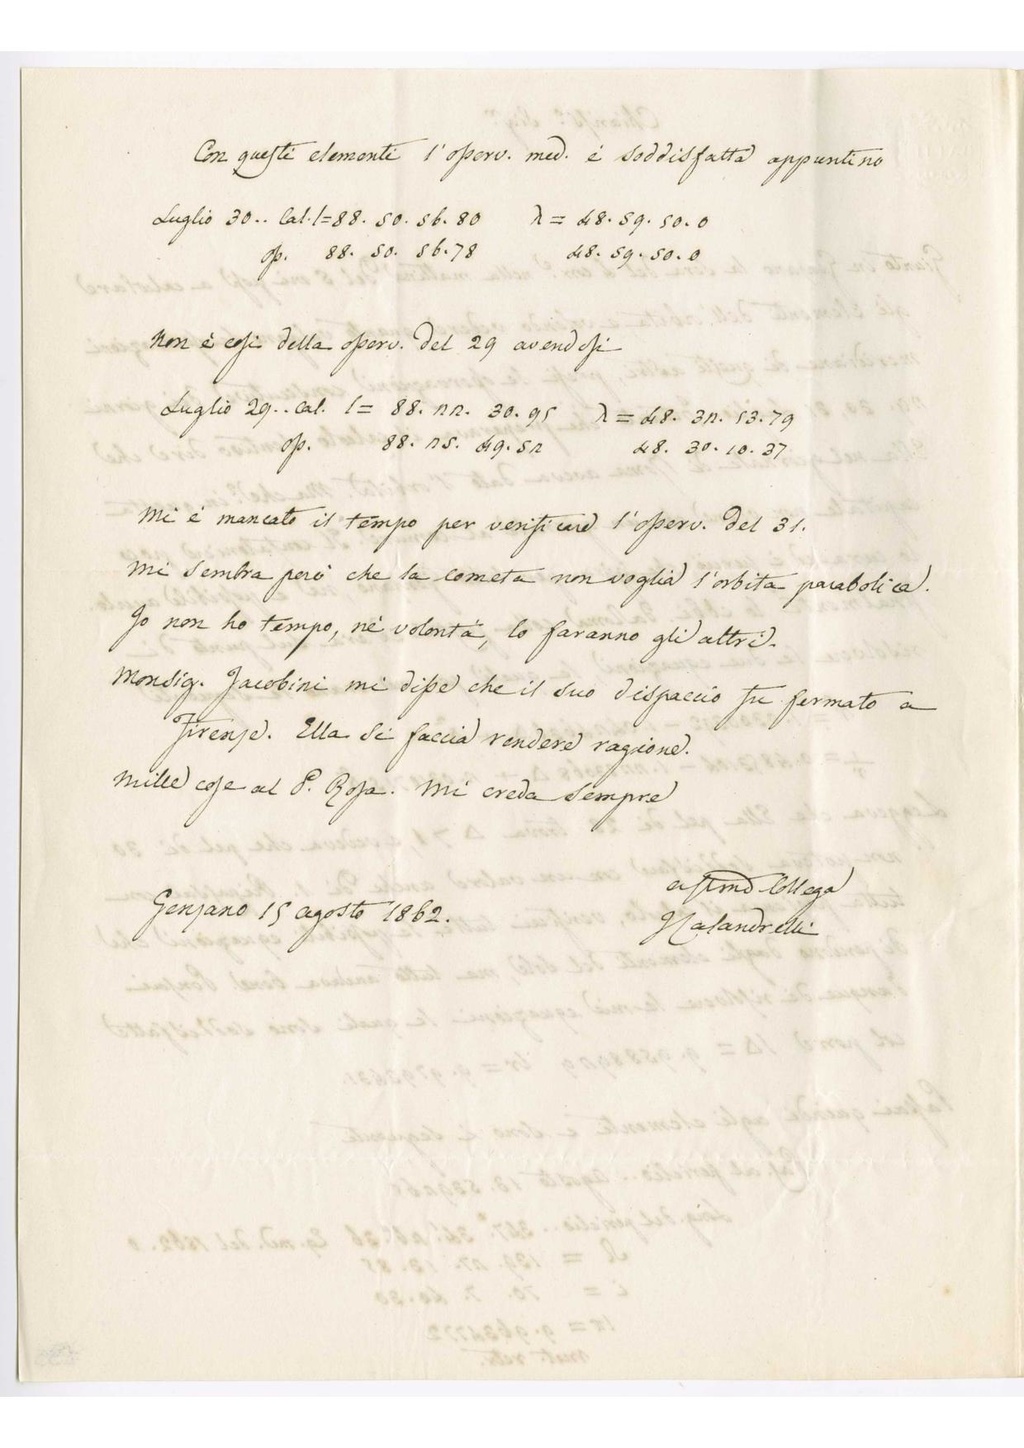 Con questi elementi l'osserv. med. é soddisfatta appuntino
Luglio 30.. Cal. l=88. 50. 56. 80 λ = 48. 59. 50. 0
oss. 88. 50. 56. 78 48. 59. 50. 0
Non é cosi della osserv. del 29 avendosi
Luglio 29.. Cal. l = 88. 22. 30. 95 λ = 48. 32. 53. 79
oss. 88. 25. 49. 52 48. 30. 10. 37
Mi é mancato il tempo per verificare l'osserv. del 31.
Mi sembra peró che la cometa non voglia l'orbita parabolica.
Io non ho tempo, né volontá, lo faranno gli altri.
Monsig. Jacobini mi disse che il suo dispaccio fu fermato a
Firenze. Ella si faccia rendere ragione.
Mille cose al P. Rosa. Mi creda sempre
Genzano 15 agosto 1862.
Collega
I Calandrelli